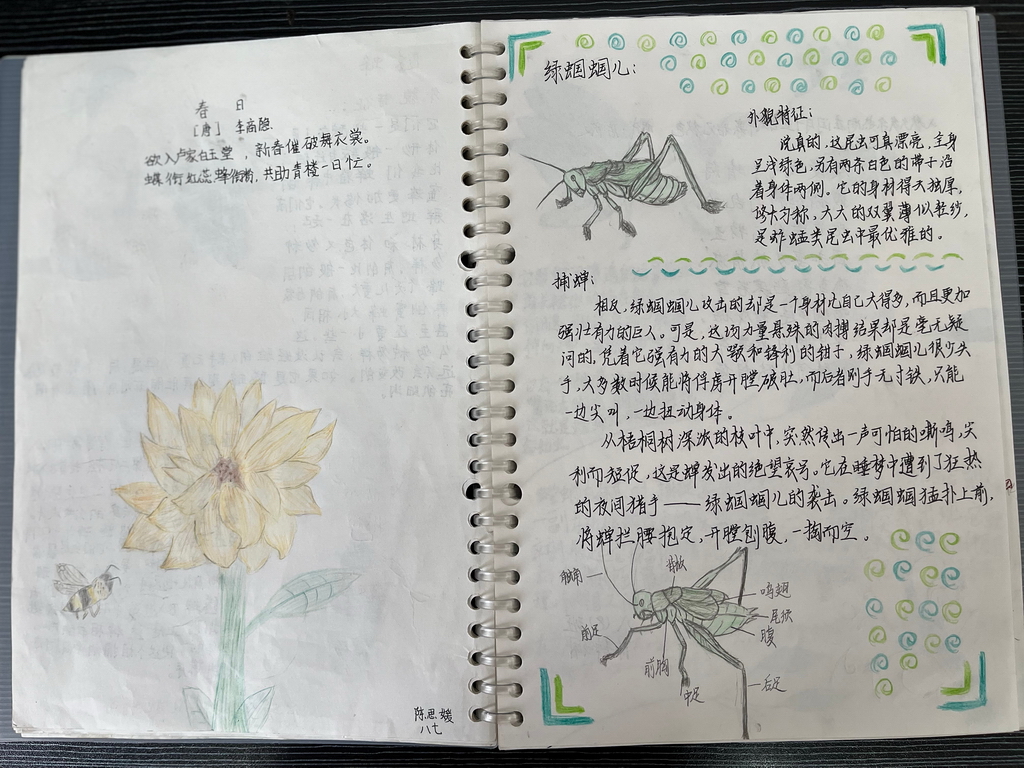 春 日
[唐] 李商隐
欲入卢家白玉堂，新春催破舞衣裳。
蝶衔红蕊蜂衔粉，共助青楼一日忙。
陈思媛
八七
绿蝈蝈儿：
外貌特征：
说真的，这昆虫可真漂亮，全身
呈浅绿色，另有两条白色的带子沿
着身体两侧。它的身材得天独厚，
大方称，大大的双翼薄似轻纱，
是蚱蜢类昆虫中最优雅的。
捕蝉：
相反，绿蝈蝈儿攻击的却是一个身材比自己大得多，而且更加
强壮有力的巨人。可是，这场力量悬殊的肉搏结果却是毫无疑
问的。凭着它强有力的大颚和锋利的钳子，绿蝈蝈儿很少失
手，大多数时候能将俘虏开膛破肚，而后者则手无寸铁，只能
一边尖叫，一边扭动身体。
从梧桐树浓派的枝叶中，突然传出一声可怕的嘶鸣，尖
利而短促，这是蝉发出的绝望哀号。它在睡梦中遭到了狂热
的夜间猎手——绿蝈蝈儿的袭击。绿蝈蝈猛扑上前，
将蝉拦腰抱定，开膛刨腹，一掏而空。
触角
背板
鸣翅
尾须
腹
前足
前胸
中足
后足